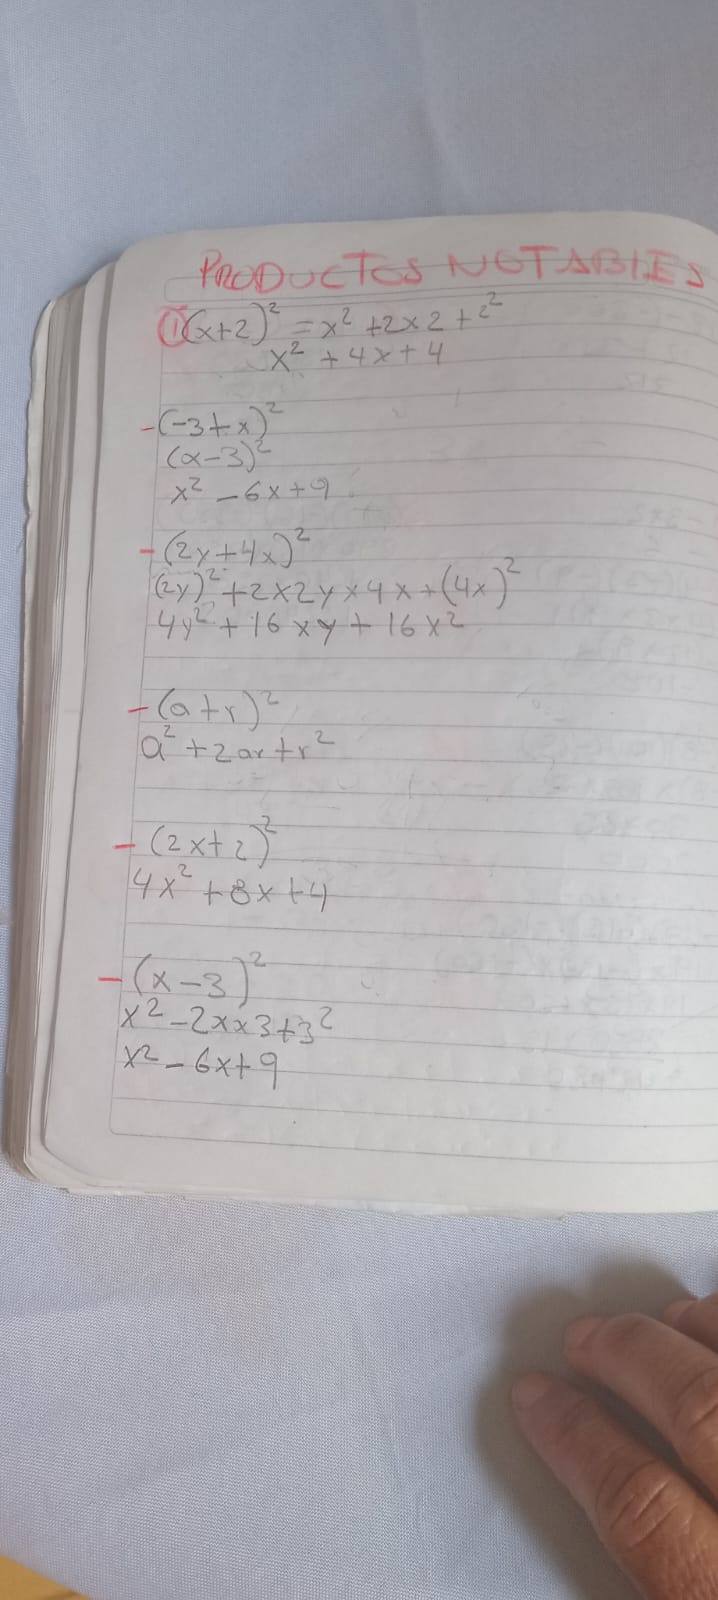 PRODUCTOS NOTABLES
① (x+2)² = x² +2x2+2²
x² +4x+4
-(-3+x)²
(x-3)²
x² -6x+9
-(2y+4x)²
(2y)²+2x2yx4x+(4x)²
4y²+16xy+16x²
-(a+r)²
a²+2ar+r²
-(2x+2)²
4x²+8x+4
-(x-3)²
x²-2xx3+3²
x²-6x+9